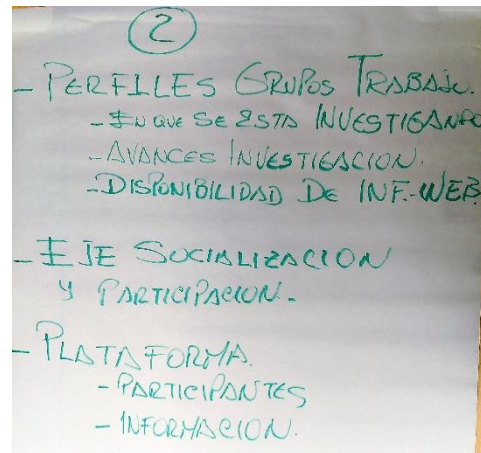 2
- PERFILES GRUPOS TRABAJO.
- EN QUE SE ESTA INVESTIGANDO
- AVANCES INVESTIGACION.
- DISPONIBILIDAD DE INF.-WEB
- EJE SOCIALIZACION
Y PARTICIPACION-
- PLATAFORMA.
- PARTICIPANTES
- INFORMACION.